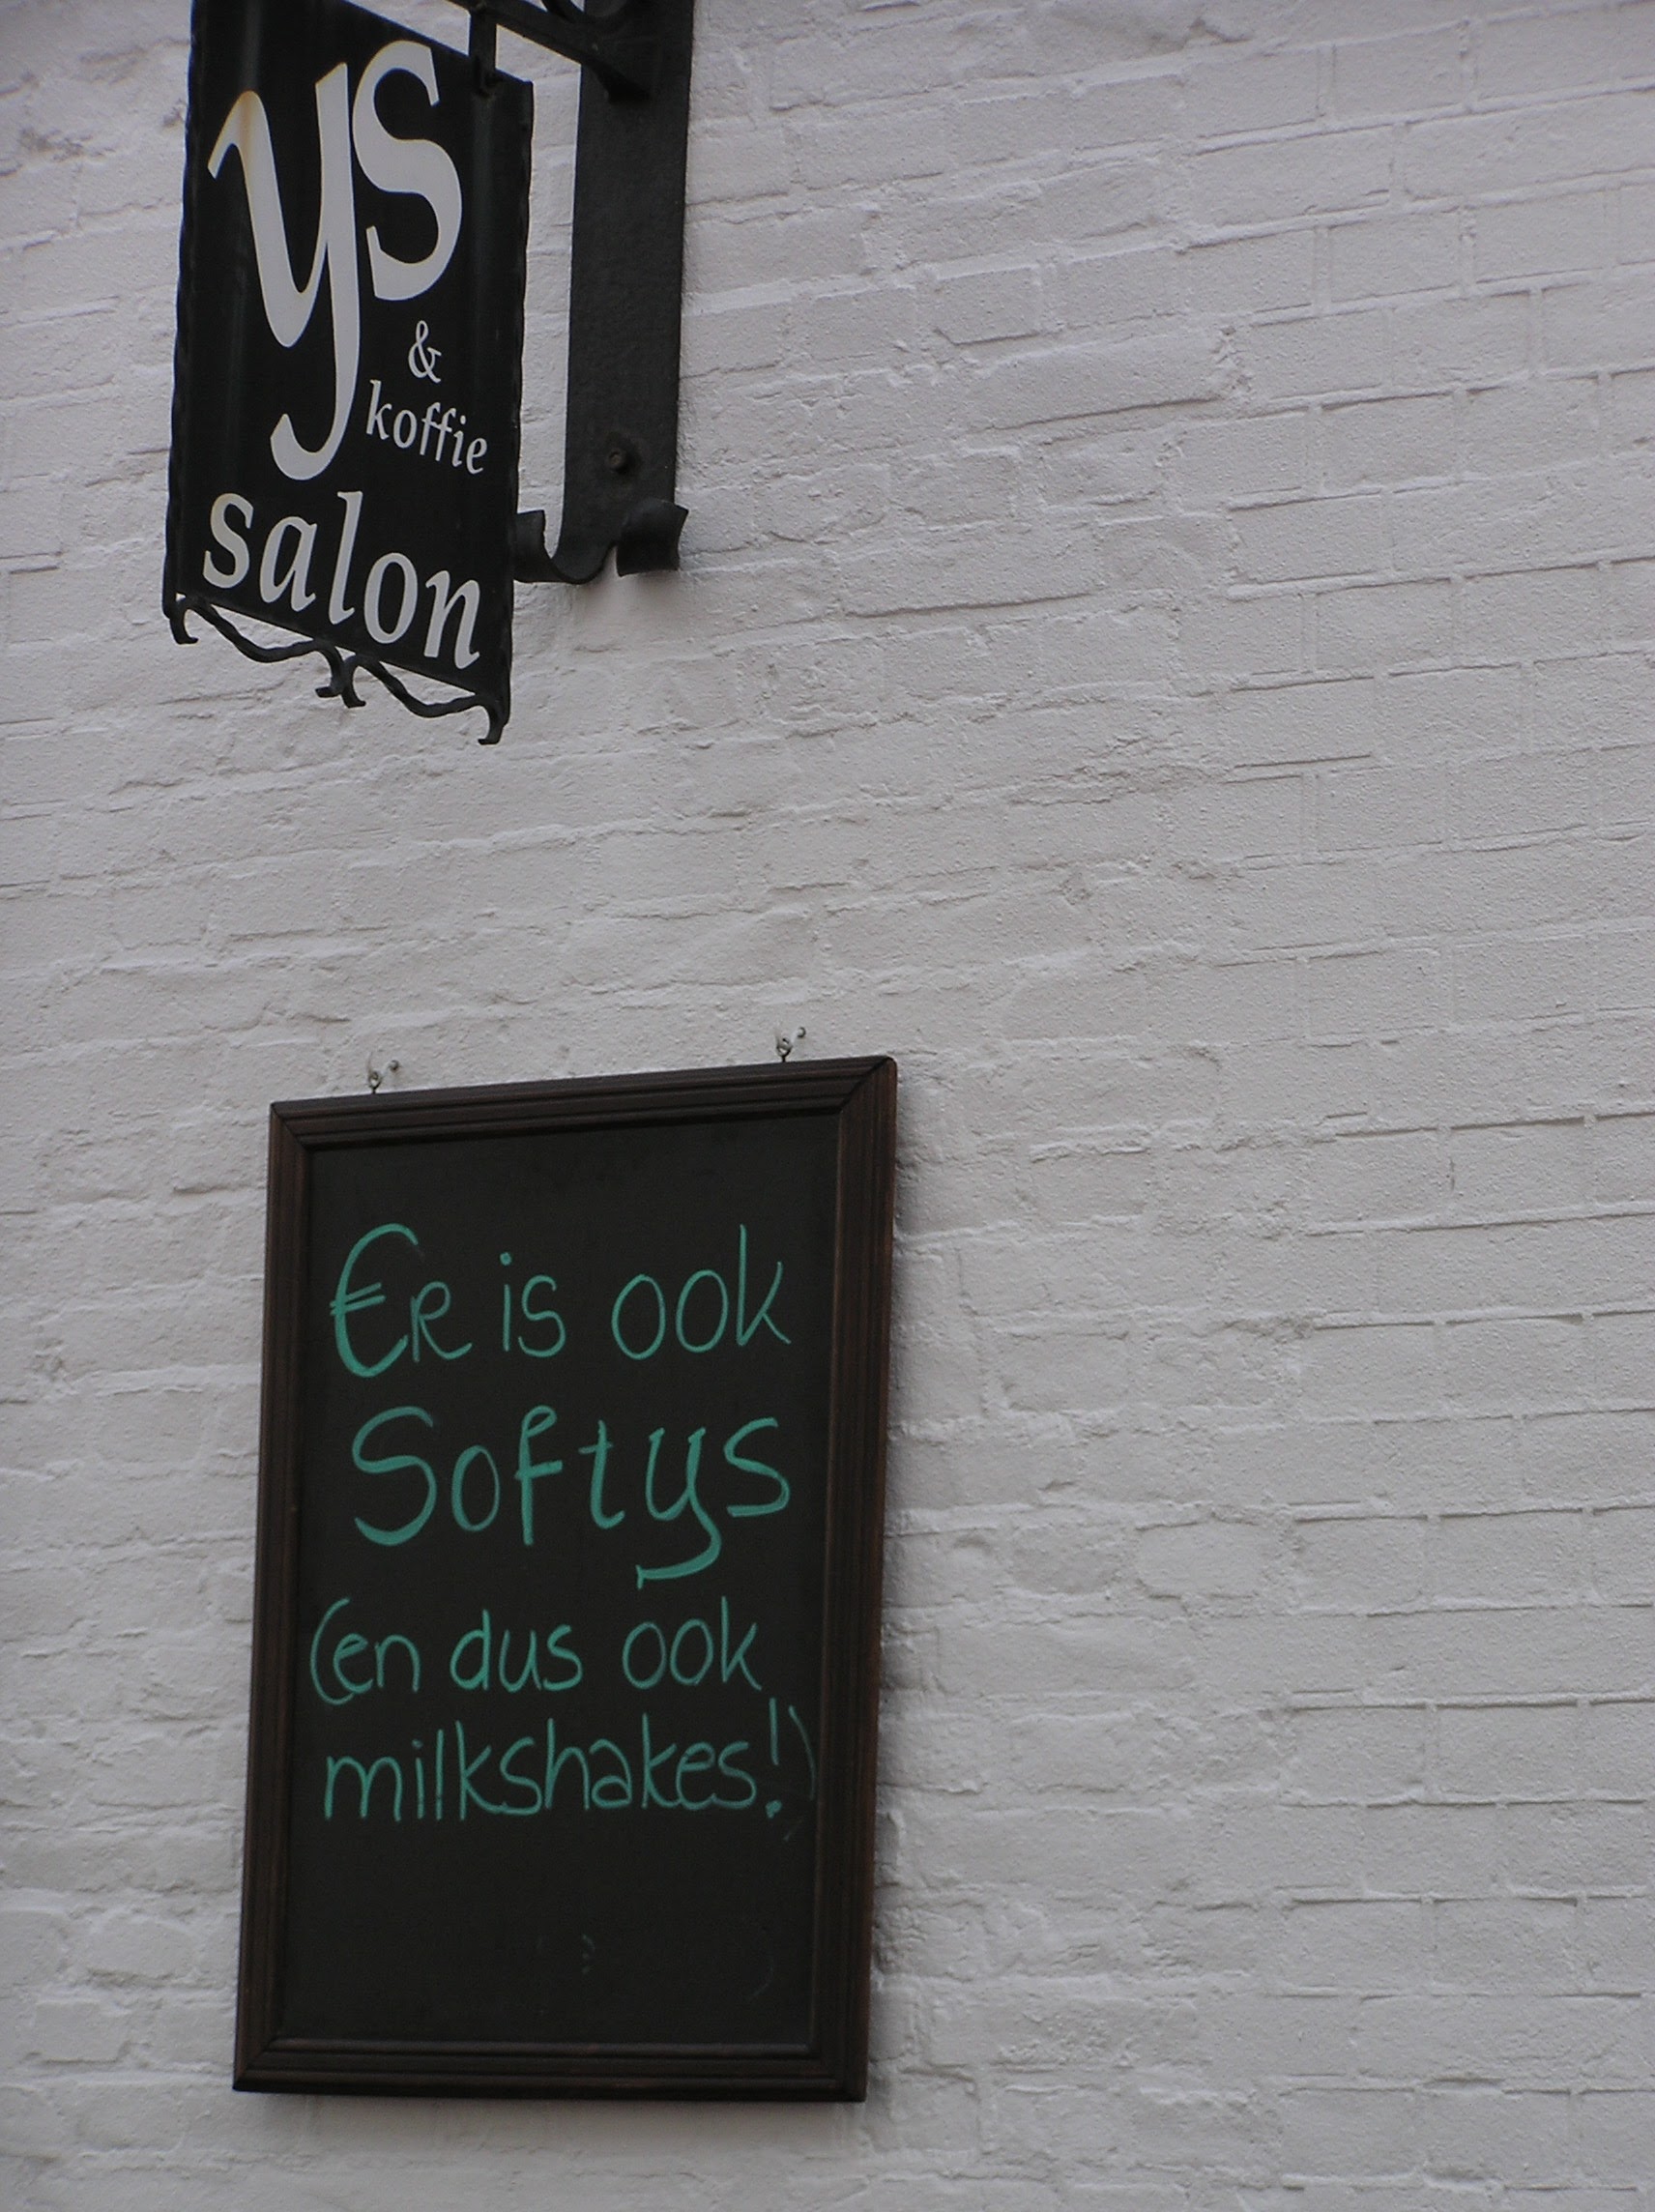 ys
&
koffie
salon
€R is ook
Softys
(en dus ook
milkshakes!)